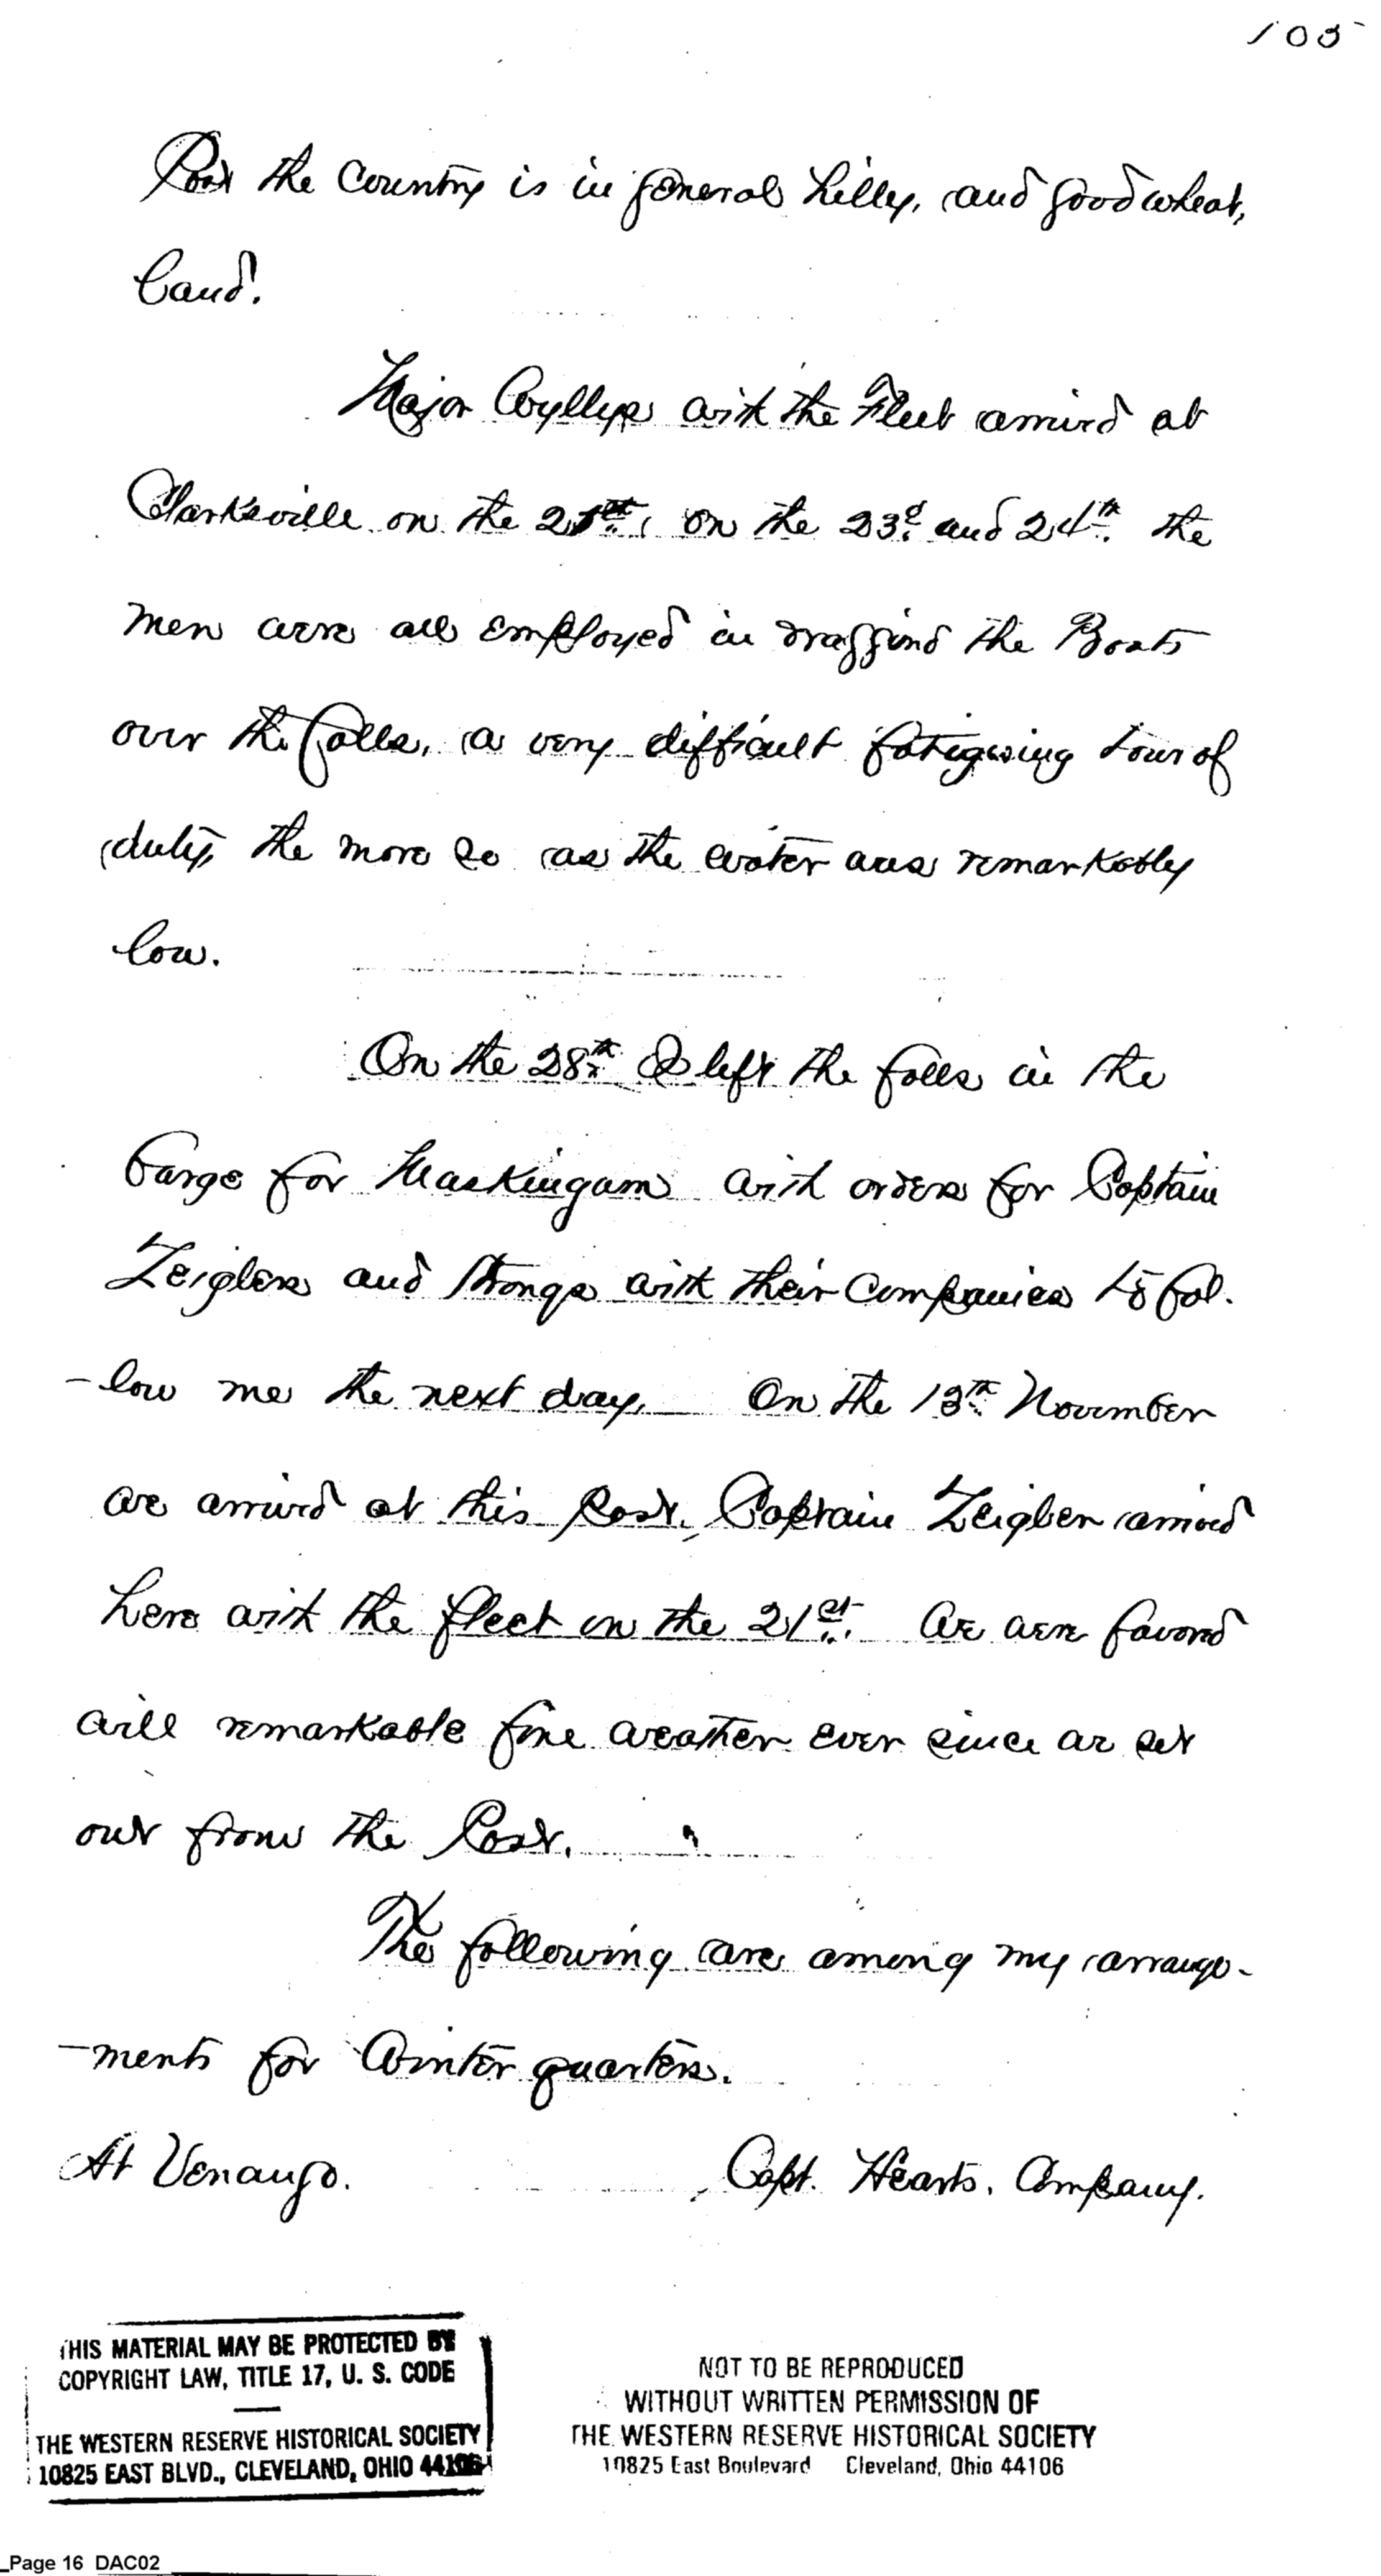 105
Post the Country is in general hilly, and good wheat,
land.
Major Wyllys with the Fleet arrived at
Clarksville on the 21st, on the 23d. and 24th. the
men were all employed in dragging the Boats
over the falls, a very difficult fatigueing tour of
duty, the more so as the water was remarkably
low.
On the 28th I left the falls in the
barge for Muskingum with orders for Captain
Zeiglers and Strongs with their Companies to fol-
-low me the next day. On the 13th November
we arrived at this Post. Captain Zeigler arrived
here with the fleet on the 21st. We were favored
will remarkable fine weather ever since we set
out from the Post.
The following are among my arrange-
-ments for Winter quarters.
At Venango. Capt. Hearts. Company.
THIS MATERIAL MAY BE PROTECTED BY
COPYRIGHT LAW, TITLE 17, U. S. CODE
THE WESTERN RESERVE HISTORICAL SOCIETY
10825 EAST BLVD., CLEVELAND, OHIO 44106
NOT TO BE REPRODUCED
WITHOUT WRITTEN PERMISSION OF
THE WESTERN RESERVE HISTORICAL SOCIETY
10825 East Boulevard Cleveland, Ohio 44106
Page 16 DAC02